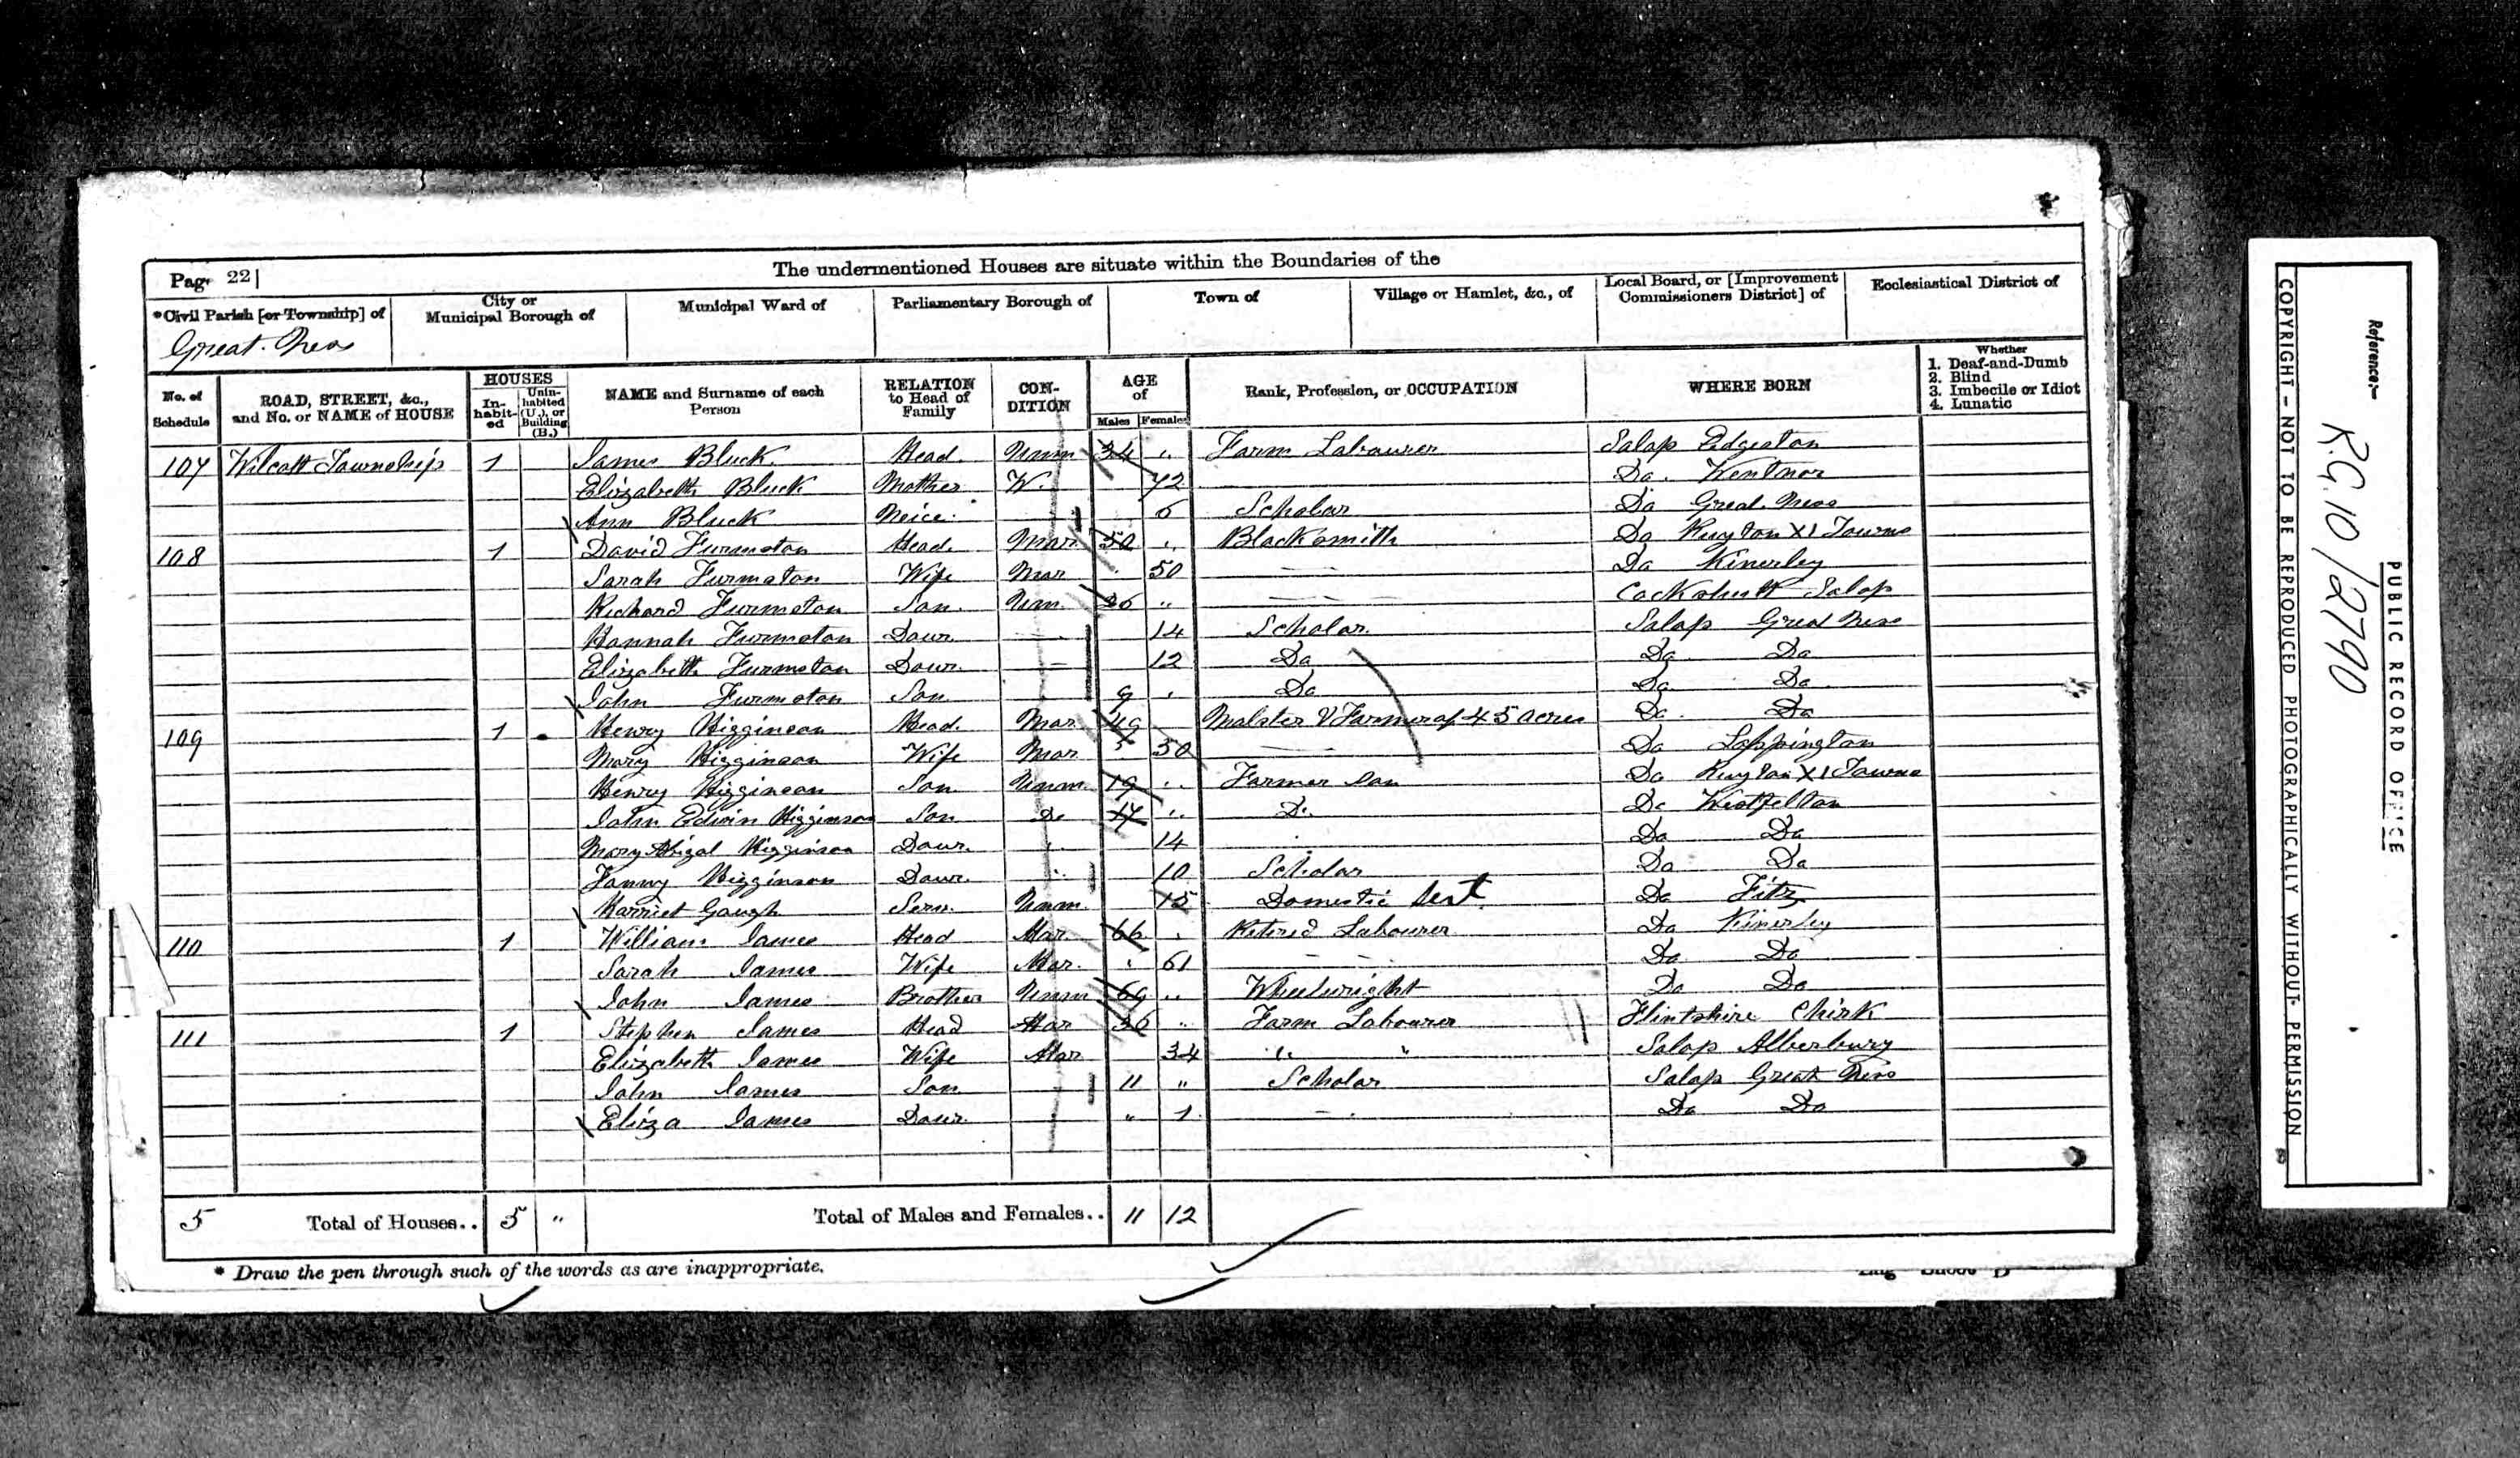 Page 22
The undermentioned Houses are situate within the Boundaries of the
*Civil Parish [or Township] of
Great Ness
City or Municipal Borough of
Municipal Ward of
Parliamentary Borough of
Town of
Village or Hamlet, &c., of
Local Board, or [Improvement Commissioners District] of
Ecclesiastical District of
No. of Schedule
ROAD, STREET, &c., and No. or NAME of HOUSE
HOUSES
In-habit-ed
Unin-habited (U.), or Building (B.)
NAME and Surname of each Person
RELATION to Head of Family
CON-DITION
AGE of
Males Females
Rank, Profession, or OCCUPATION
WHERE BORN
Whether
1. Deaf-and-Dumb
2. Blind
3. Imbecile or Idiot
4. Lunatic
107 Wilcott Township 1 James Bluck Head Unm 34 " Farm Labourer Salop Edgeton
Elizabeth Bluck Mother W. 72 Do. Wentnor
Ann Bluck Neice 6 Scholar Do Great Ness
108 1 David Furmston Head Mar 50 " Blacksmith Do Ruyton XI Towns
Sarah Furmston Wife Mar 50 Do Kinerley
Richard Furmston Son Unm 26 " Cockshutt Salop
Hannah Furmston Daur 14 Scholar Salop Great Ness
Elizabeth Furmston Daur 12 Do Do Do
John Furmston Son 9 Do Do Do
109 1 Henry Higginson Head Mar 49 Malster & Farmer of 45 acres Do Do
Mary Higginson Wife Mar 50 Do Loppington
Henry Higginson Son Unm 19 Farmer Son Do Ruyton XI Towns
John Edwin Higginson Son Do 17 Do Do Westfelton
Mary Abigal Higginson Daur 14 Do Do
Fanny Higginson Daur 10 Scholar Do Do
Harriet Gough Serv. Unm 15 Domestic Servt Do Fitz
110 1 William James Head Mar 66 Retired Labourer Do Kinerley
Sarah James Wife Mar 61 Do Do
John James Brother Unm 69 " Wheelwright Do Do
111 1 Stephen James Head Mar 36 " Farm Labourer Flintshire Chirk
Elizabeth James Wife Mar 34 " " Salop Alberbury
John James Son 11 " Scholar Salop Great Ness
Eliza James Daur " 1 Do Do
5 Total of Houses.. 5 " Total of Males and Females.. 11 12
* Draw the pen through such of the words as are inappropriate.
Reference:-
R.G. 10/2790
PUBLIC RECORD OFFICE
COPYRIGHT - NOT TO BE REPRODUCED PHOTOGRAPHICALLY WITHOUT PERMISSION